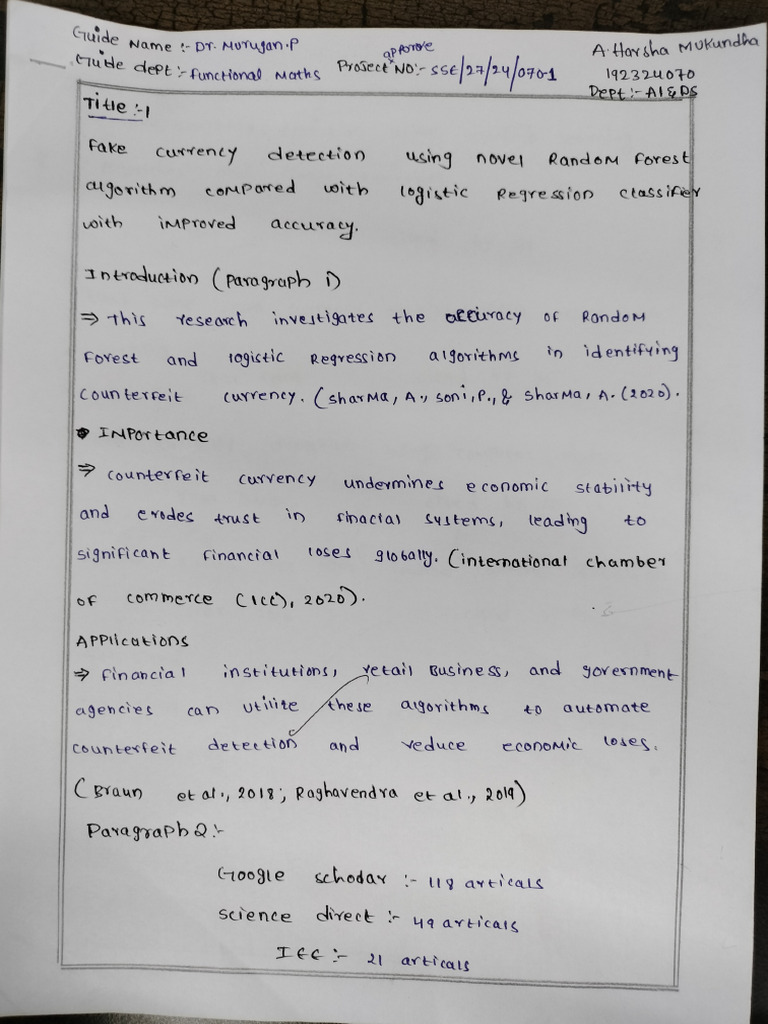 Guide Name :- Dr. Murugan.P
Guide dept :- functional Maths
approve
Project NO:- SSE/27/24/070-1
A. Harsha Mukundha
192324070
Dept:- AI&DS
Title :-1
Fake currency detection using novel Random Forest
algorithm compared with logistic Regression classifier
with improved accuracy.
Introduction (paragraph 1)
⇒ This research investigates the accuracy of Random
Forest and logistic Regression algorithms in identifying
counterfeit currency. (sharma, A., soni, P., & sharma, A. (2020).
• Importance
⇒ counterfeit currency undermines economic stability
and erodes trust in finacial systems, leading to
significant financial loses globally. (international chamber
of commerce (ICC), 2020).
Applications
⇒ financial institutions, retail Business, and government
agencies can utilize these algorithms to automate
counterfeit detection and reduce economic loses.
(Braun et al., 2018; Raghavendra et al., 2019)
Paragraph 2:-
Google schodar :- 118 articals
science direct :- 49 articals
IEE :- 21 articals